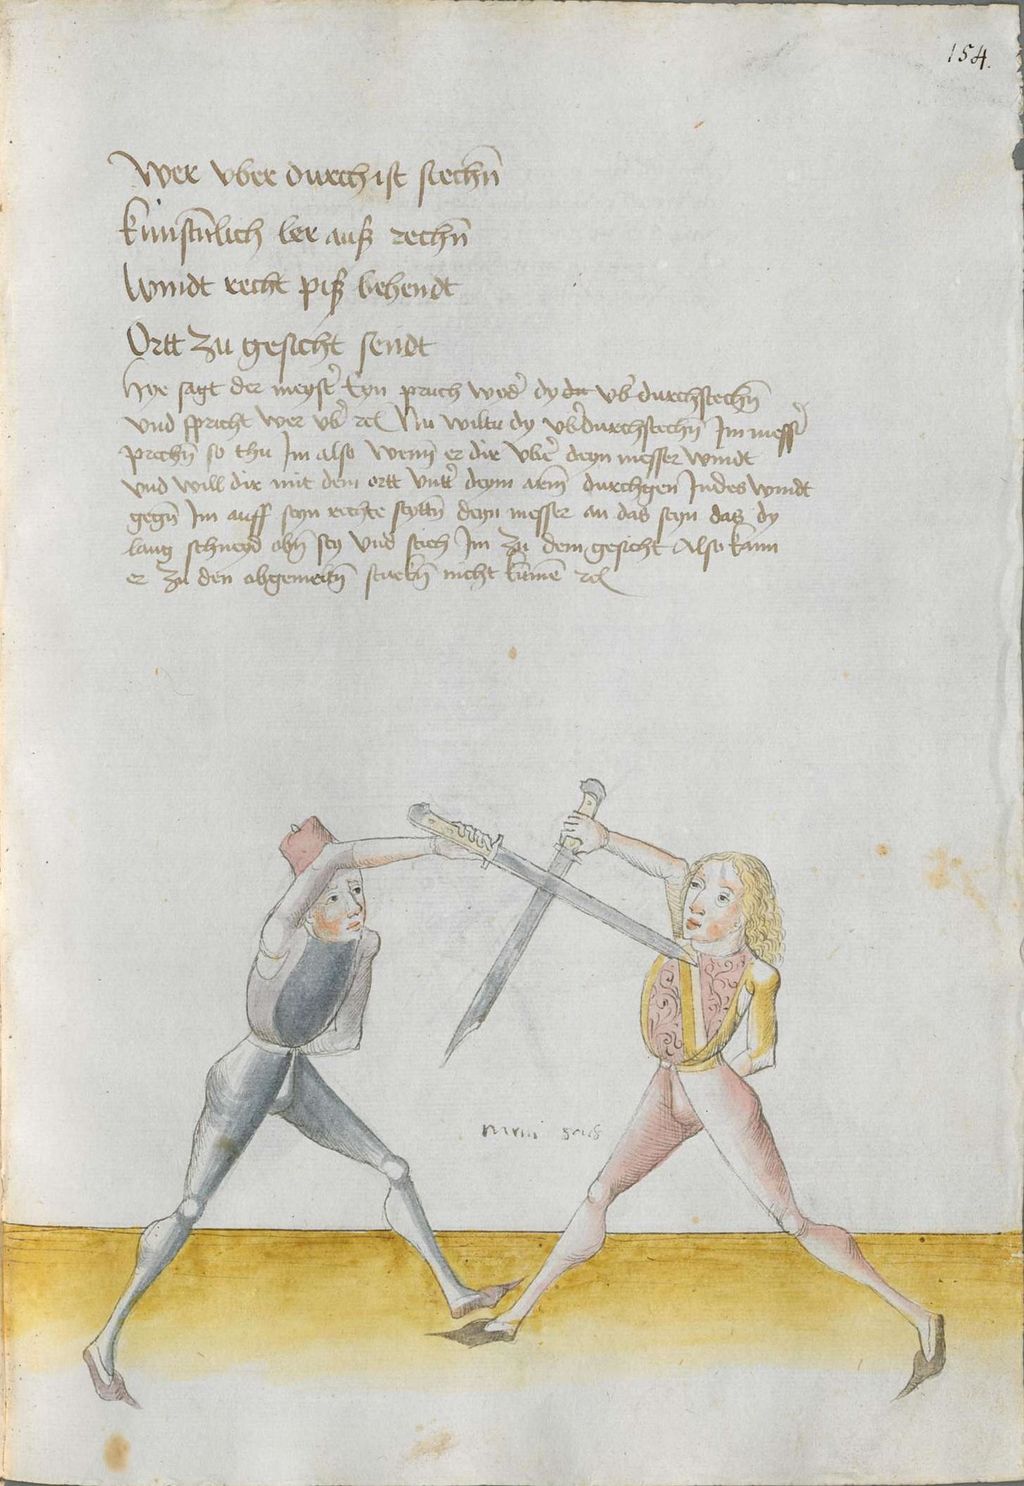 154.
Wer vber durch ist stechn̄
kunstn̄lich ler auß rechn̄
Windt recht piß behendt
Ortt zu gesicht sendt
Hye sagt der meystˀ eyn pruch widˀ dy du vbˀ durchstechn̄
vnd spricht wer vbˀ rc Nu wiltu dy vbˀdurchstechn̄ Im messˀ
prechn̄ so thu Im also wenn̄ er dir vbeˀ deyn messer windt
vnd will dir mit dem ortt vntˀ deym arm̄ durchgen Indes windt
gegn̄ Im auff seyn rechte seyttn̄ deyn messer an das seyn das dy
lang schneyd obn̄ sey vnd stich Im zu dem gesicht Also kann
er zu den obgemeltn̄ stuckn̄ nicht kūmē rc